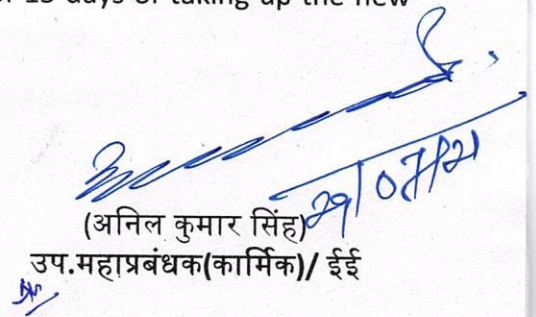 15 days of taking up the new
(अनिल कुमार सिंह)
उप.महाप्रबंधक(कार्मिक)/ ईई